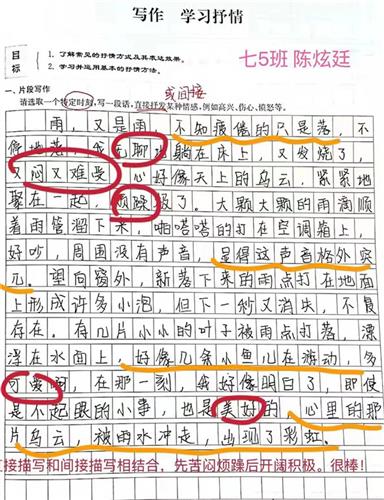 写作 学习抒情
目标
1. 了解常见的抒情方式及其表达效果。
2. 学习并运用基本的抒情方法。
七5班 陈炫廷
一、片段写作
或间接
请选取一个特定时刻,写一段话,直接抒发某种情感,例如高兴、伤心、愤怒等。
雨,又是雨,不知疲倦的只是落,不
停地落,我无聊地躺在床上,又发烧了,
又闷又难受 心好像天上的乌云,紧紧地
聚在一起,烦躁极了。大颗大颗的雨滴顺
着雨管溜下来,啪嗒嗒的打在空调箱上,
好吵,周围没有声音,显得这声音格外突
兀。望向窗外,新落下来的雨点打在地面
上形成许多小泡,但下一秒又消失,不复
存在。有几片小小的叶子被雨点打落,漂
浮在水面上,好像几条小鱼儿在游动,多
可爱啊,在那一刻,我好像明白了,即使
是不起眼的小事,也是美好的 心里的那
片乌云,被雨水冲走,出现了彩虹。
接描写和间接描写相结合,先苦闷烦躁后开阔积极。很棒!